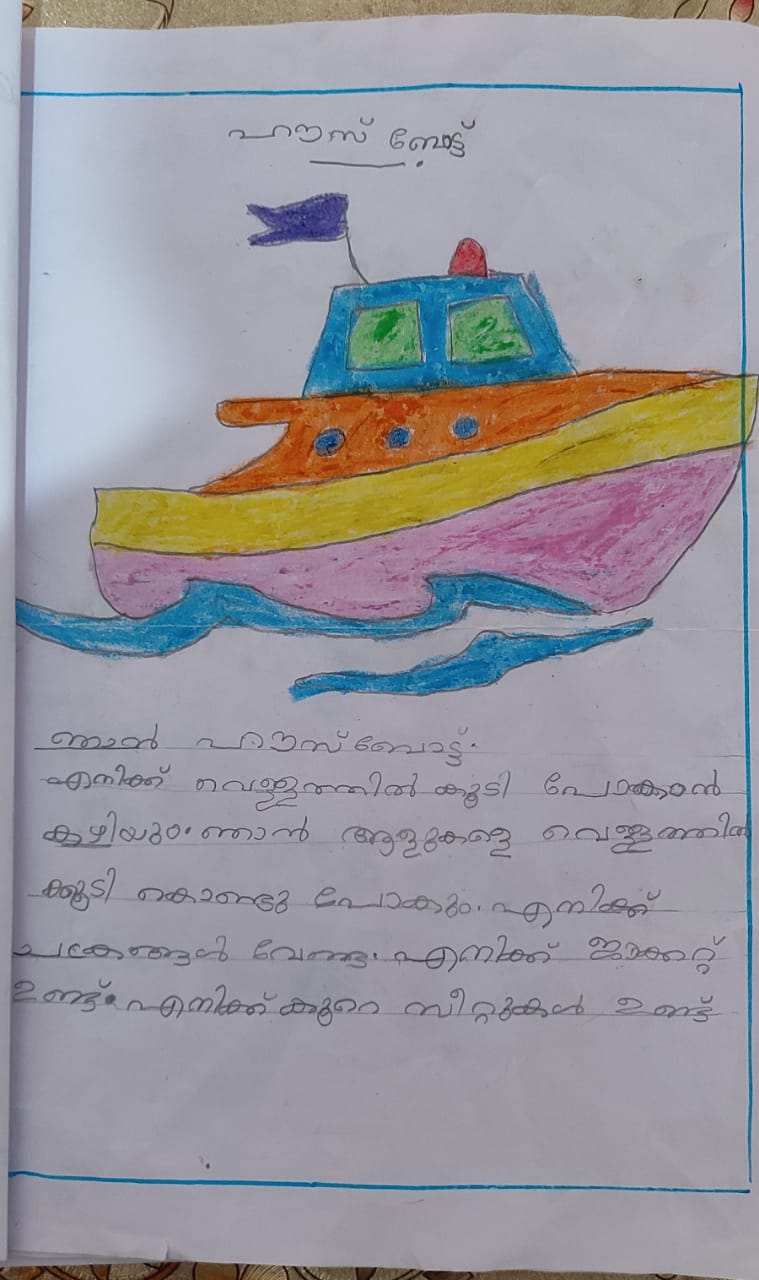 ഹൗസ് ബോട്ട്
ഞാൻ ഹൗസ് ബോട്ട്.
എനിക്ക് വെള്ളത്തിൽ കൂടി പോകാൻ
കഴിയും. ഞാൻ ആളുകളെ വെള്ളത്തിൽ
ക്കൂടി കൊണ്ടു പോകും. എനിക്ക്
ചക്രങ്ങൾ വേണ്ട. എനിക്ക് ജാക്കറ്റ്
ഉണ്ട്. എനിക്ക് കുറെ സീറ്റുകൾ ഉണ്ട്